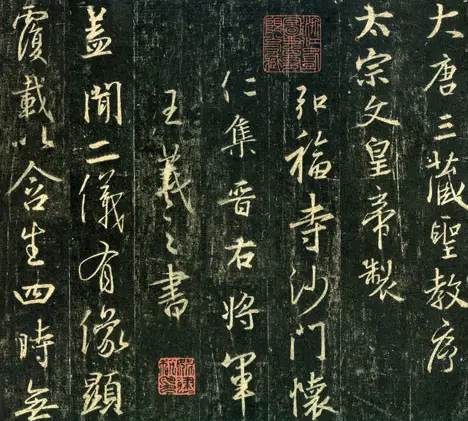 大唐三藏聖教序
太宗文皇帝製
弘福寺沙門懷
仁集晉右將軍
王羲之書
蓋聞二儀有像顯
覆載以含生四時無